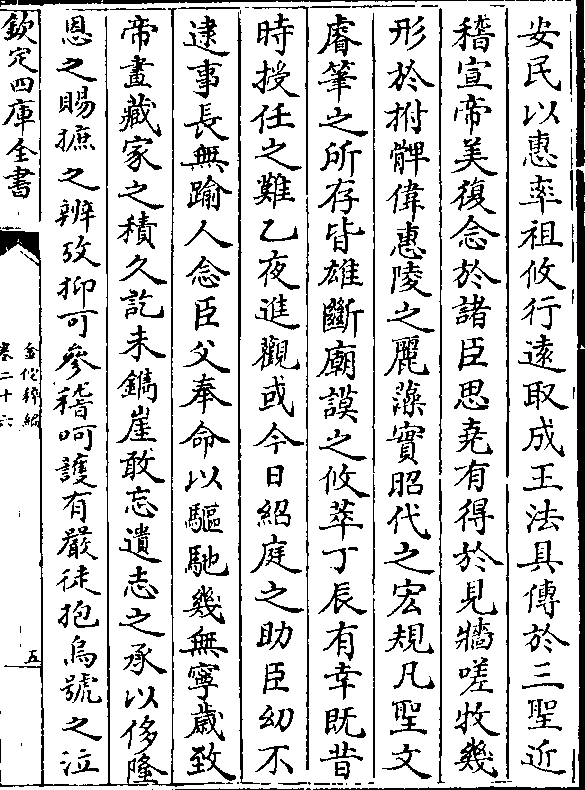 安民以惠率祖攸行遠取成王法具傳於三聖近
稽宣帝美復念於諸臣思堯有得於見牆嗟牧幾
形於拊髀偉惠陵之麗藻實昭代之宏規凡聖文
睿筆之所存皆雄斷廟謨之攸萃丁辰有幸既昔
時授任之難乙夜進觀或今日紹庭之助臣幼不
逮事長無踰人念臣父奉命以驅馳幾無寧歲致
帝畫藏家之積久訖未鐫崖敢忘遺志之承以侈隆
恩之賜摭之辨攷抑可參稽呵護有嚴徒抱烏號之泣
欽定四庫全書
金佗稡編
卷二十六
五